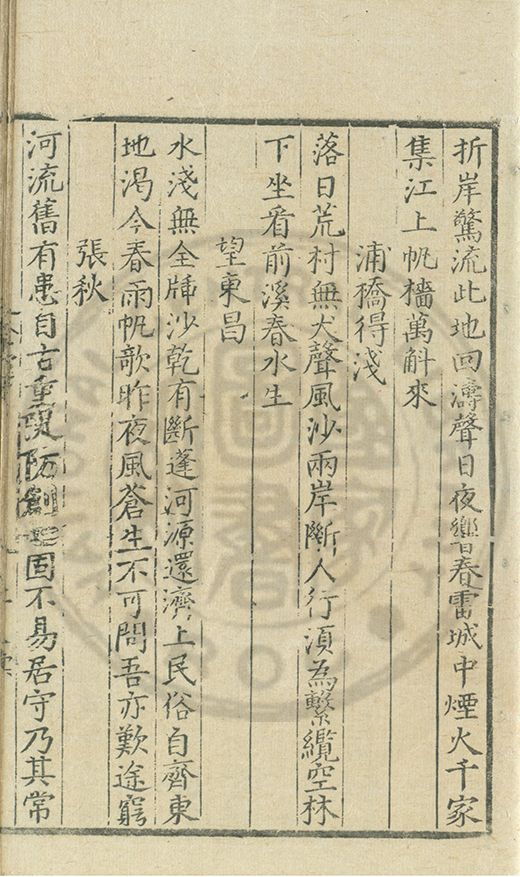 折岸驚流此地回濤聲日夜響春雷城中煙火千家
集江上帆檣萬斛來
浦橋得淺
落日荒村無犬聲風沙兩岸斷人行須為繫纜空林
下坐看前溪春水生
望東昌
水淺無全牐沙乾有斷蓬河源還濟上民俗自齊東
地渴今春雨帆歌昨夜風蒼生不可問吾亦歎途窮
張秋
河流舊有患自古重隄防固不易居守乃其常